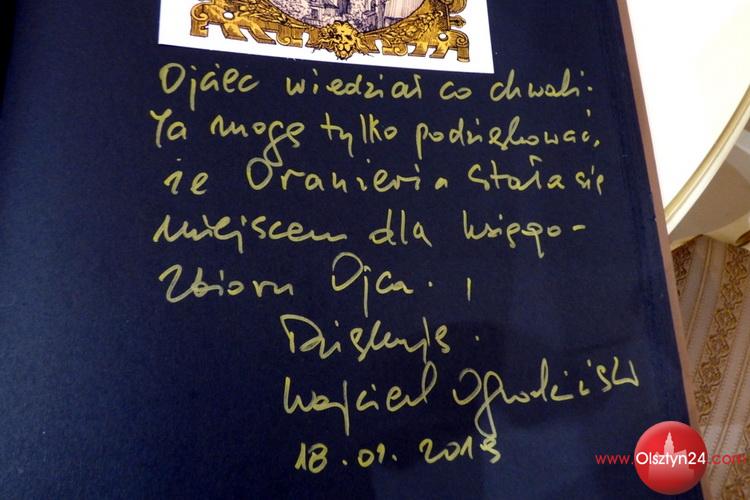 Ojciec wiedział co chwali.
Ja mogę tylko podziękować,
że Oranżeria stała się
miejscem dla księgo-
zbioru Ojca.
Dziękuję.
Wojciech Ogrodziński
18.01.2019
www.Olsztyn24.com